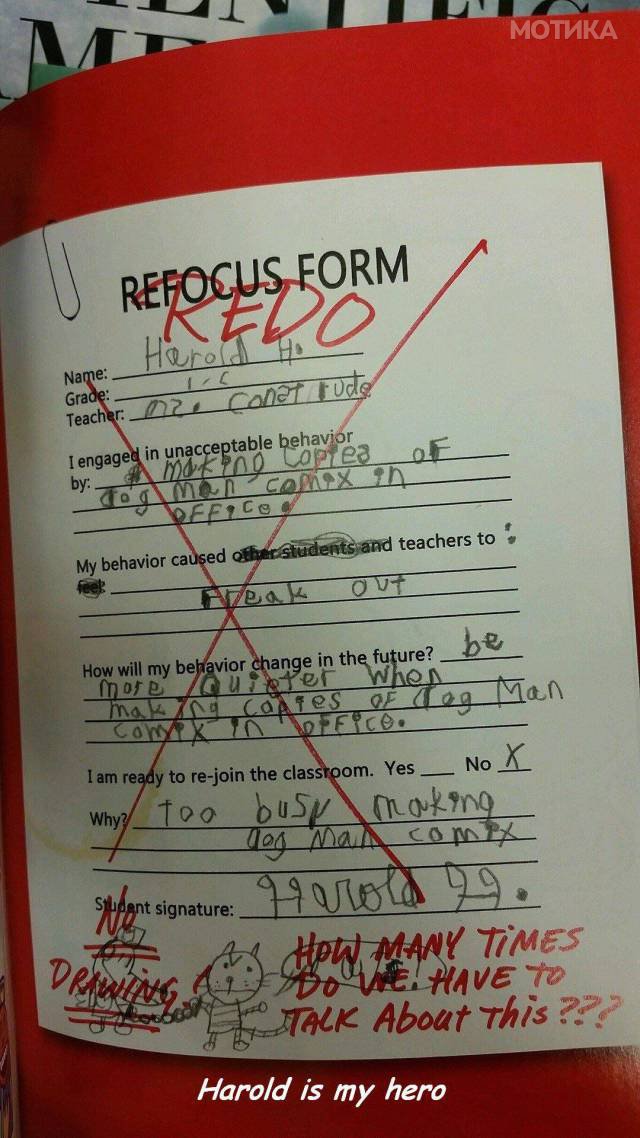 МОТИКА
REFOCUS FORM
REDO
Name: Harold H.
Grade:
Teacher: mz. Construde
I engaged in unacceptable behavior
by: making copies of
dog man comix in
office.
My behavior caused other students and teachers to :
feel
Freak out
How will my behavior change in the future? be
more quieter when
making copies of dog Man
comix in office.
I am ready to re-join the classroom. Yes ___ No X
Why? too busy making
dog Man comix
Student signature: Harold H.
No
DRAWING!
HOW MANY TiMES
Do WE HAVE TO
TALK About This ???
Harold is my hero